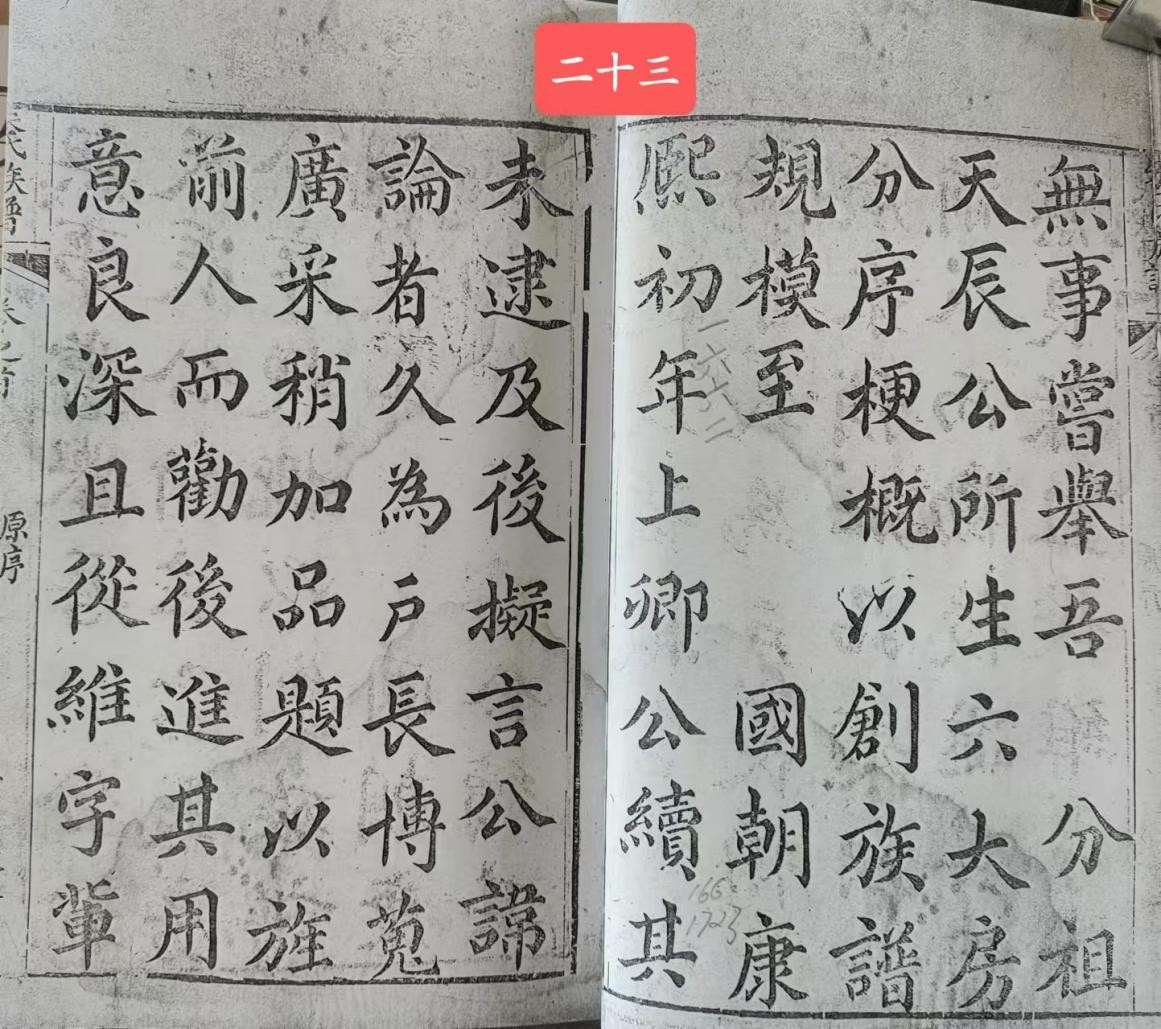 二十三
無事嘗舉吾 分祖
天辰公所生六大房
分序梗概以創族譜
規模至 國朝康
熙初年上卿公續其
一六六二
166
1723
未逮及後擬言公諦
論者久為戶長博蒐
廣采稍加品題以旌
前人而勸後進其用
意良深且從維字輩
原序